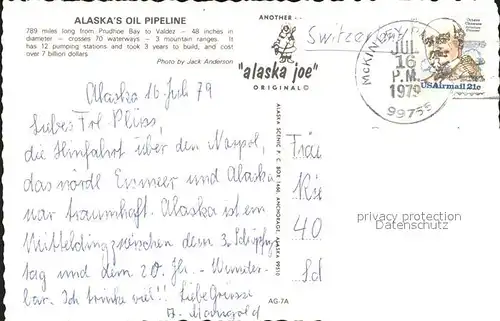 ALASKA'S OIL PIPELINE
789 miles long from Prudhoe Bay to Valdez — 48 inches in
diameter – crosses 70 waterways – 3 mountain ranges. It
has 12 pumping stations and took 3 years to build, and cost
over 7 billion dollars
Photo by Jack Anderson
ANOTHER
"alaska joe"
ORIGINAL©
Switzerland
McKINLEY
JUL
16
P.M.
1979
99755
USAirmail 21c
Alaska 16. Juli 79
Liebes Frl. Plüss,
die Hinfahrt über den Norpol,
das nördl Eismeer und Alaska
war traumhaft. Alaska ist ein
Mittelding zwischen dem 3. Schöpfungs
tag und dem 20. Jh. - Wunder-
bar. Ich trinke viel!! Liebe Grüsse
ALASKA SCENIC P. C. BOX 1460, ANCHORAGE, ALASKA 99510
AG-7A
40
privacy protection
Datenschutz